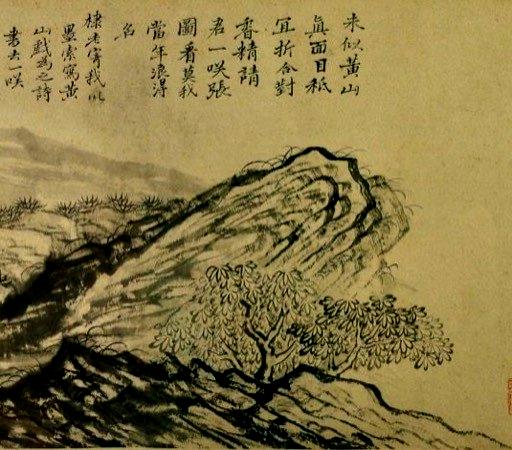 未似黃山
真面目秖
宜折合對
精
君一咲張
圖看莫我
當年浪得
名
棣老寄我以
墨索寫黃
山戲為之詩
書去一咲